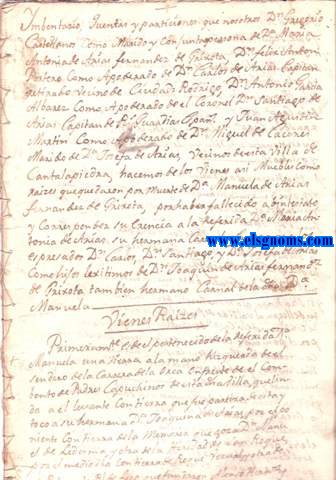 Ymbentario, Quentas y particiones que nosotros Dn. Gregorio
Castellanos Como Marido y Conjunta persona de Da. Maria
Antonia de Arias fernandez de Grixota, Dn. felix Antonio
Como Apoderado de Dn. Carlos de Arias, Capitan
retirado vecino de Ciudad Rodrigo, Dn. Antonio Garcia
Albarez Como Apoderado de el Coronel Dn. Santiago de
Arias Capitan de Guardias Españ. y Juan Agustin
Martin Como Apoderado de Dn. Miguel de Caceres
Marido de Da. Josefa de Arias, Vecinos de esta Villa de
Cantalapiedra, hacemos de los Vienes asi Muebles Como
Raices que quedaron por muerte de Da. Manuela de Arias
fernandez de Grixota, por haber fallecido abintestato,
y Corresponder su Erencia a la Referida Da. Maria Anto
nia de Arias, su hermana
www.elsgnoms.com
espresados Dn. Carlos, Dn. Santiago y Da. Josefa de Arias
Como hijos lexitimos de Dn. Joaquin de Arias fernandz.
de Grixota tambien hermano Carnal de la Da.
Manuela
Vienes Raizes
Primeramte. de el pertenecido de la referida Da.
Manuela una tierra a la mano hizquierda de el
sendero de la Carrera de la Orca Enfrente de el Com
bento de Padres Capuchinos de esta Villa, que lin
da a el Levante Con tierra que fue
a su hermano Dn. Joaquin de Arias, por el po
niente Con tierra de la Memoria que goza Dn. Manuel
de Ledesma, y otra de la
por el medio dia Con tierra de